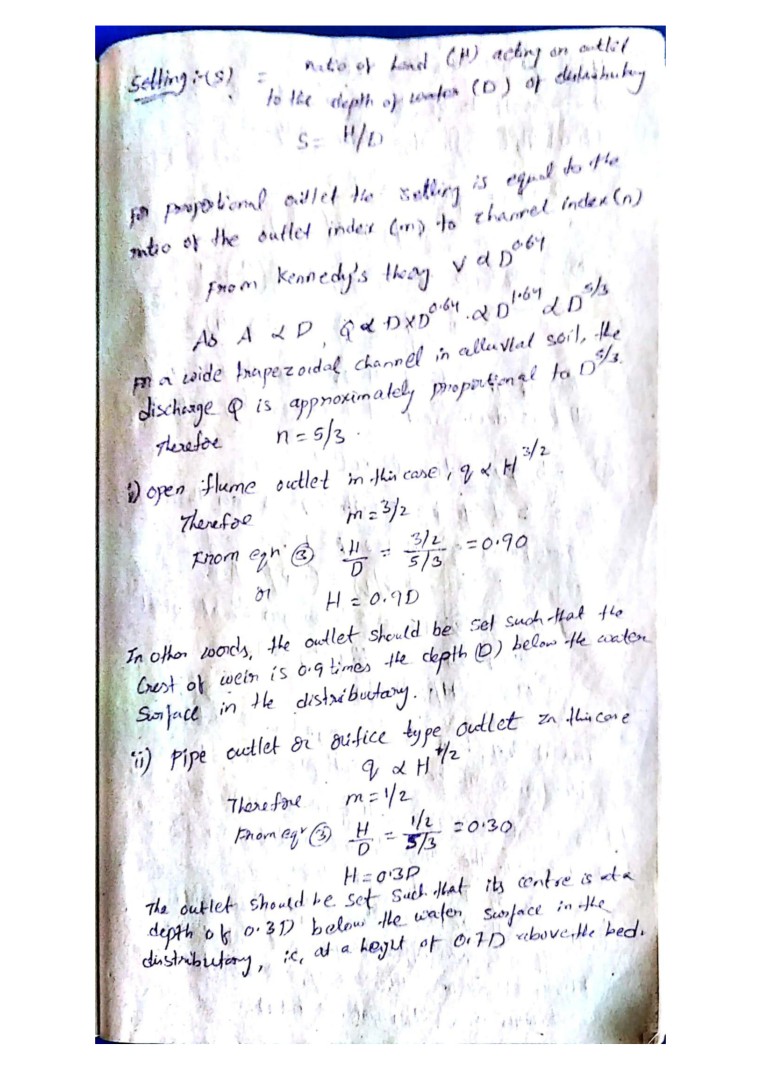 Setting :- (S) = ratio of head (H) acting on outlet
to the depth of water (D) of distributary
S = H/D
For proportional outlet the setting is equal to the
ratio of the outlet index (m) to channel index (n)
From Kennedy's theory V ∝ D^0.64
As A ∝ D, Q ∝ D×D^0.64 ∝ D^1.64 ∝ D^5/3
For a wide trapezoidal channel in alluvial soil, the
discharge Q is approximately proportional to D^5/3.
Therefore n = 5/3.
i) open flume outlet in this case, q ∝ H^3/2
Therefore m = 3/2
From eqn ③ H/D = (3/2)/(5/3) = 0.90
or H = 0.9D
In other words, the outlet should be set such that the
Crest of weir is 0.9 times the depth (D) below the water
Surface in the distributary.
ii) Pipe outlet or orifice type outlet In this case
q ∝ H^1/2
Therefore m = 1/2
From eqn ③ H/D = (1/2)/(5/3) = 0.30
H = 0.3D
The outlet should be set Such that its centre is at a
depth of 0.3D below the water surface in the
distributary, ie, at a heght of 0.7D above the bed.